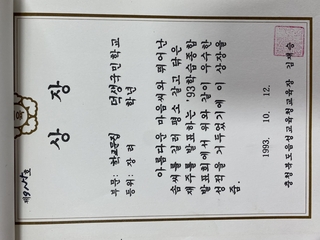 상장
부문: 학교문집
등위: 장려
덕생국민학교
학년
아름다운 마음씨와 뛰어난
솜씨를 길러 평소 갈고 닦은
재주를 발표하는 '93학습종합
발표회에서 위와 같이 우수한
성적을 거두었기에 이 상장을
줌.
1993. 10. 12.
충청북도음성교육청교육장 김재승